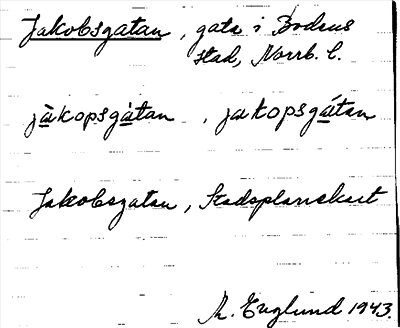 Jakobsgatan, gata i Bodens
stad, Norrb. l.
jàkopsgàtan, jakopsgátan
Jakobsgatan, Stadsplanekart
Th. Englund 1943.